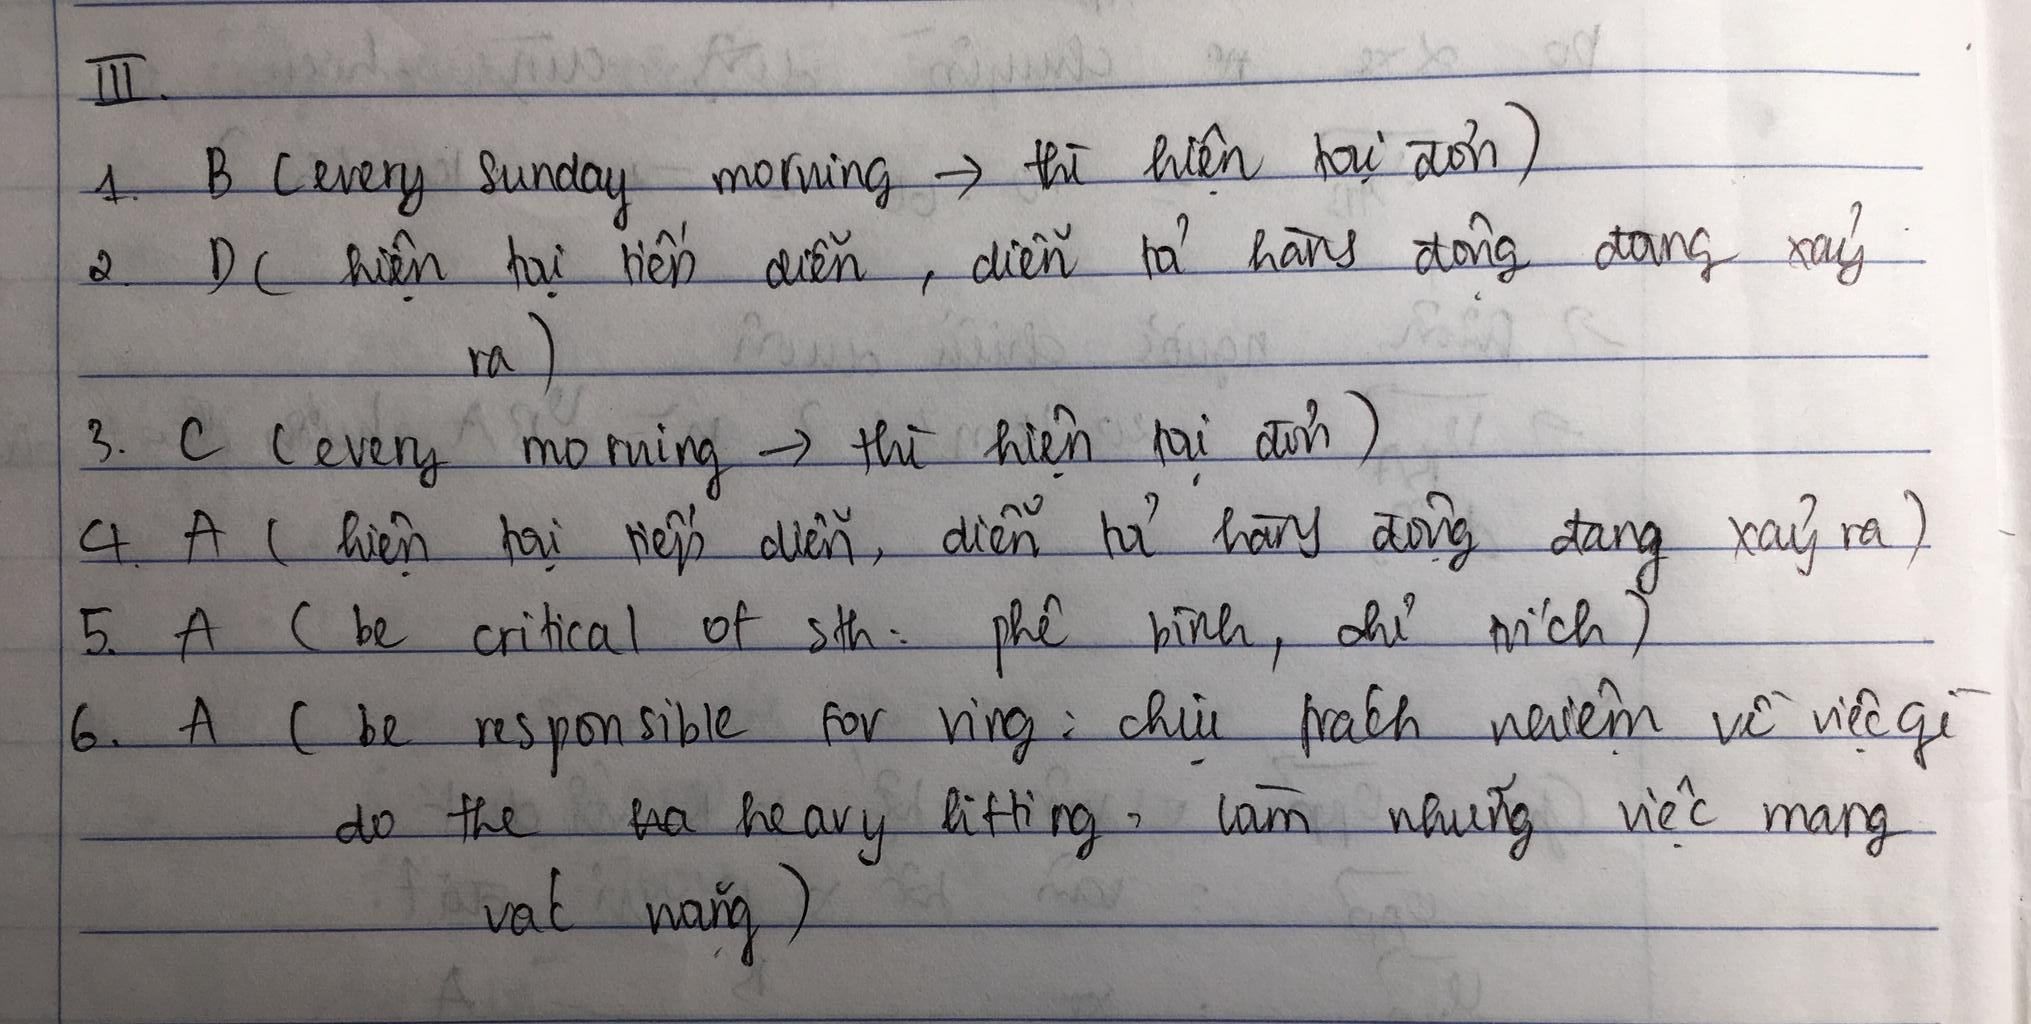 III.
1. B (every Sunday morning → thì hiện tại đơn)
2. D ( hiện tại tiếp diễn, diễn tả hành động đang xảy
ra)
3. C (every morning → thì hiện tại đơn)
4. A ( hiện tại tiếp diễn, diễn tả hành động đang xảy ra)
5. A ( be critical of sth: phê bình, chỉ trích)
6. A ( be responsible for Ving: chịu trách nhiệm về việc gì
do the heavy lifting: làm những việc mang
vác nặng)